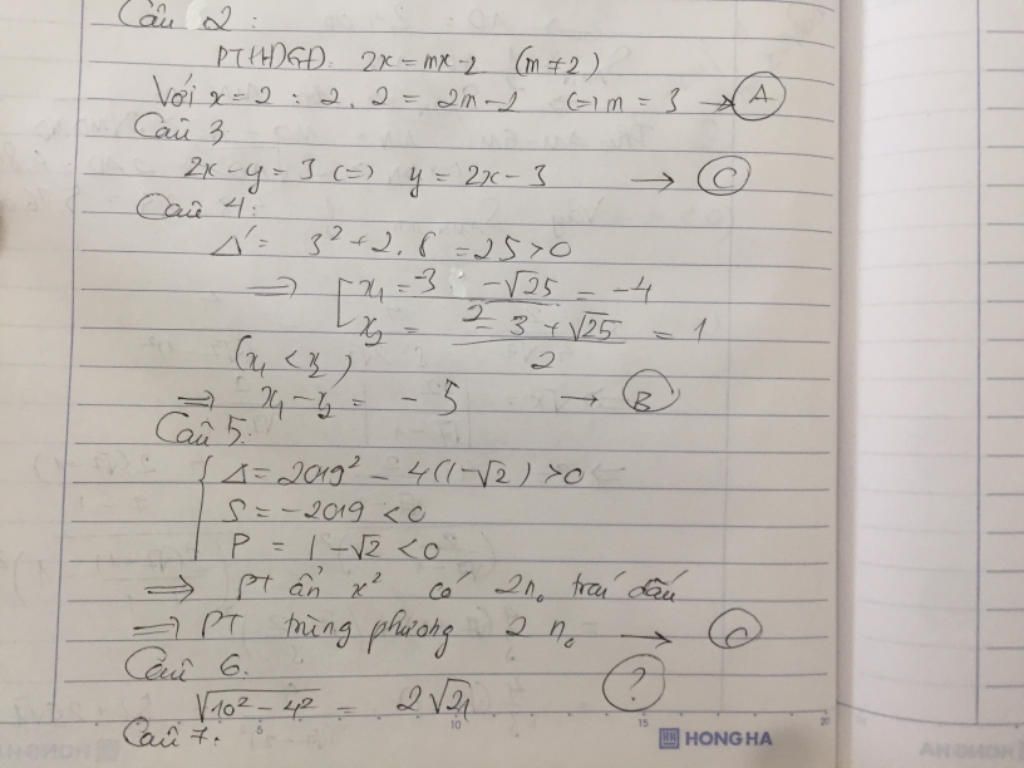 Câu 2:
PTHĐGĐ: 2x = mx - 2 (m ≠ 2)
Với x = 2 : 2.2 = 2m - 2 (=) m = 3 → A
Câu 3
2x - y = 3 (=) y = 2x - 3 → C
Câu 4:
Δ = 3² + 2.8 = 25 > 0
⇒ [ x₁ = -3 - √25 / 2 = -4
x₂ = -3 + √25 / 2 = 1
(x₁ < x₂)
⇒ x₁ - x₂ = -5 → B
Câu 5:
{ Δ = 2019² - 4(1-√2) > 0
S = -2019 < 0
P = 1 - √2 < 0
⇒ PT ẩn x² có 2 n₀ trái dấu
⇒ PT trùng phương 2 n₀ → C
Câu 6.
√10² - 4² = 2√21 ?
Câu 7:
5 10 15 20
HONG HA